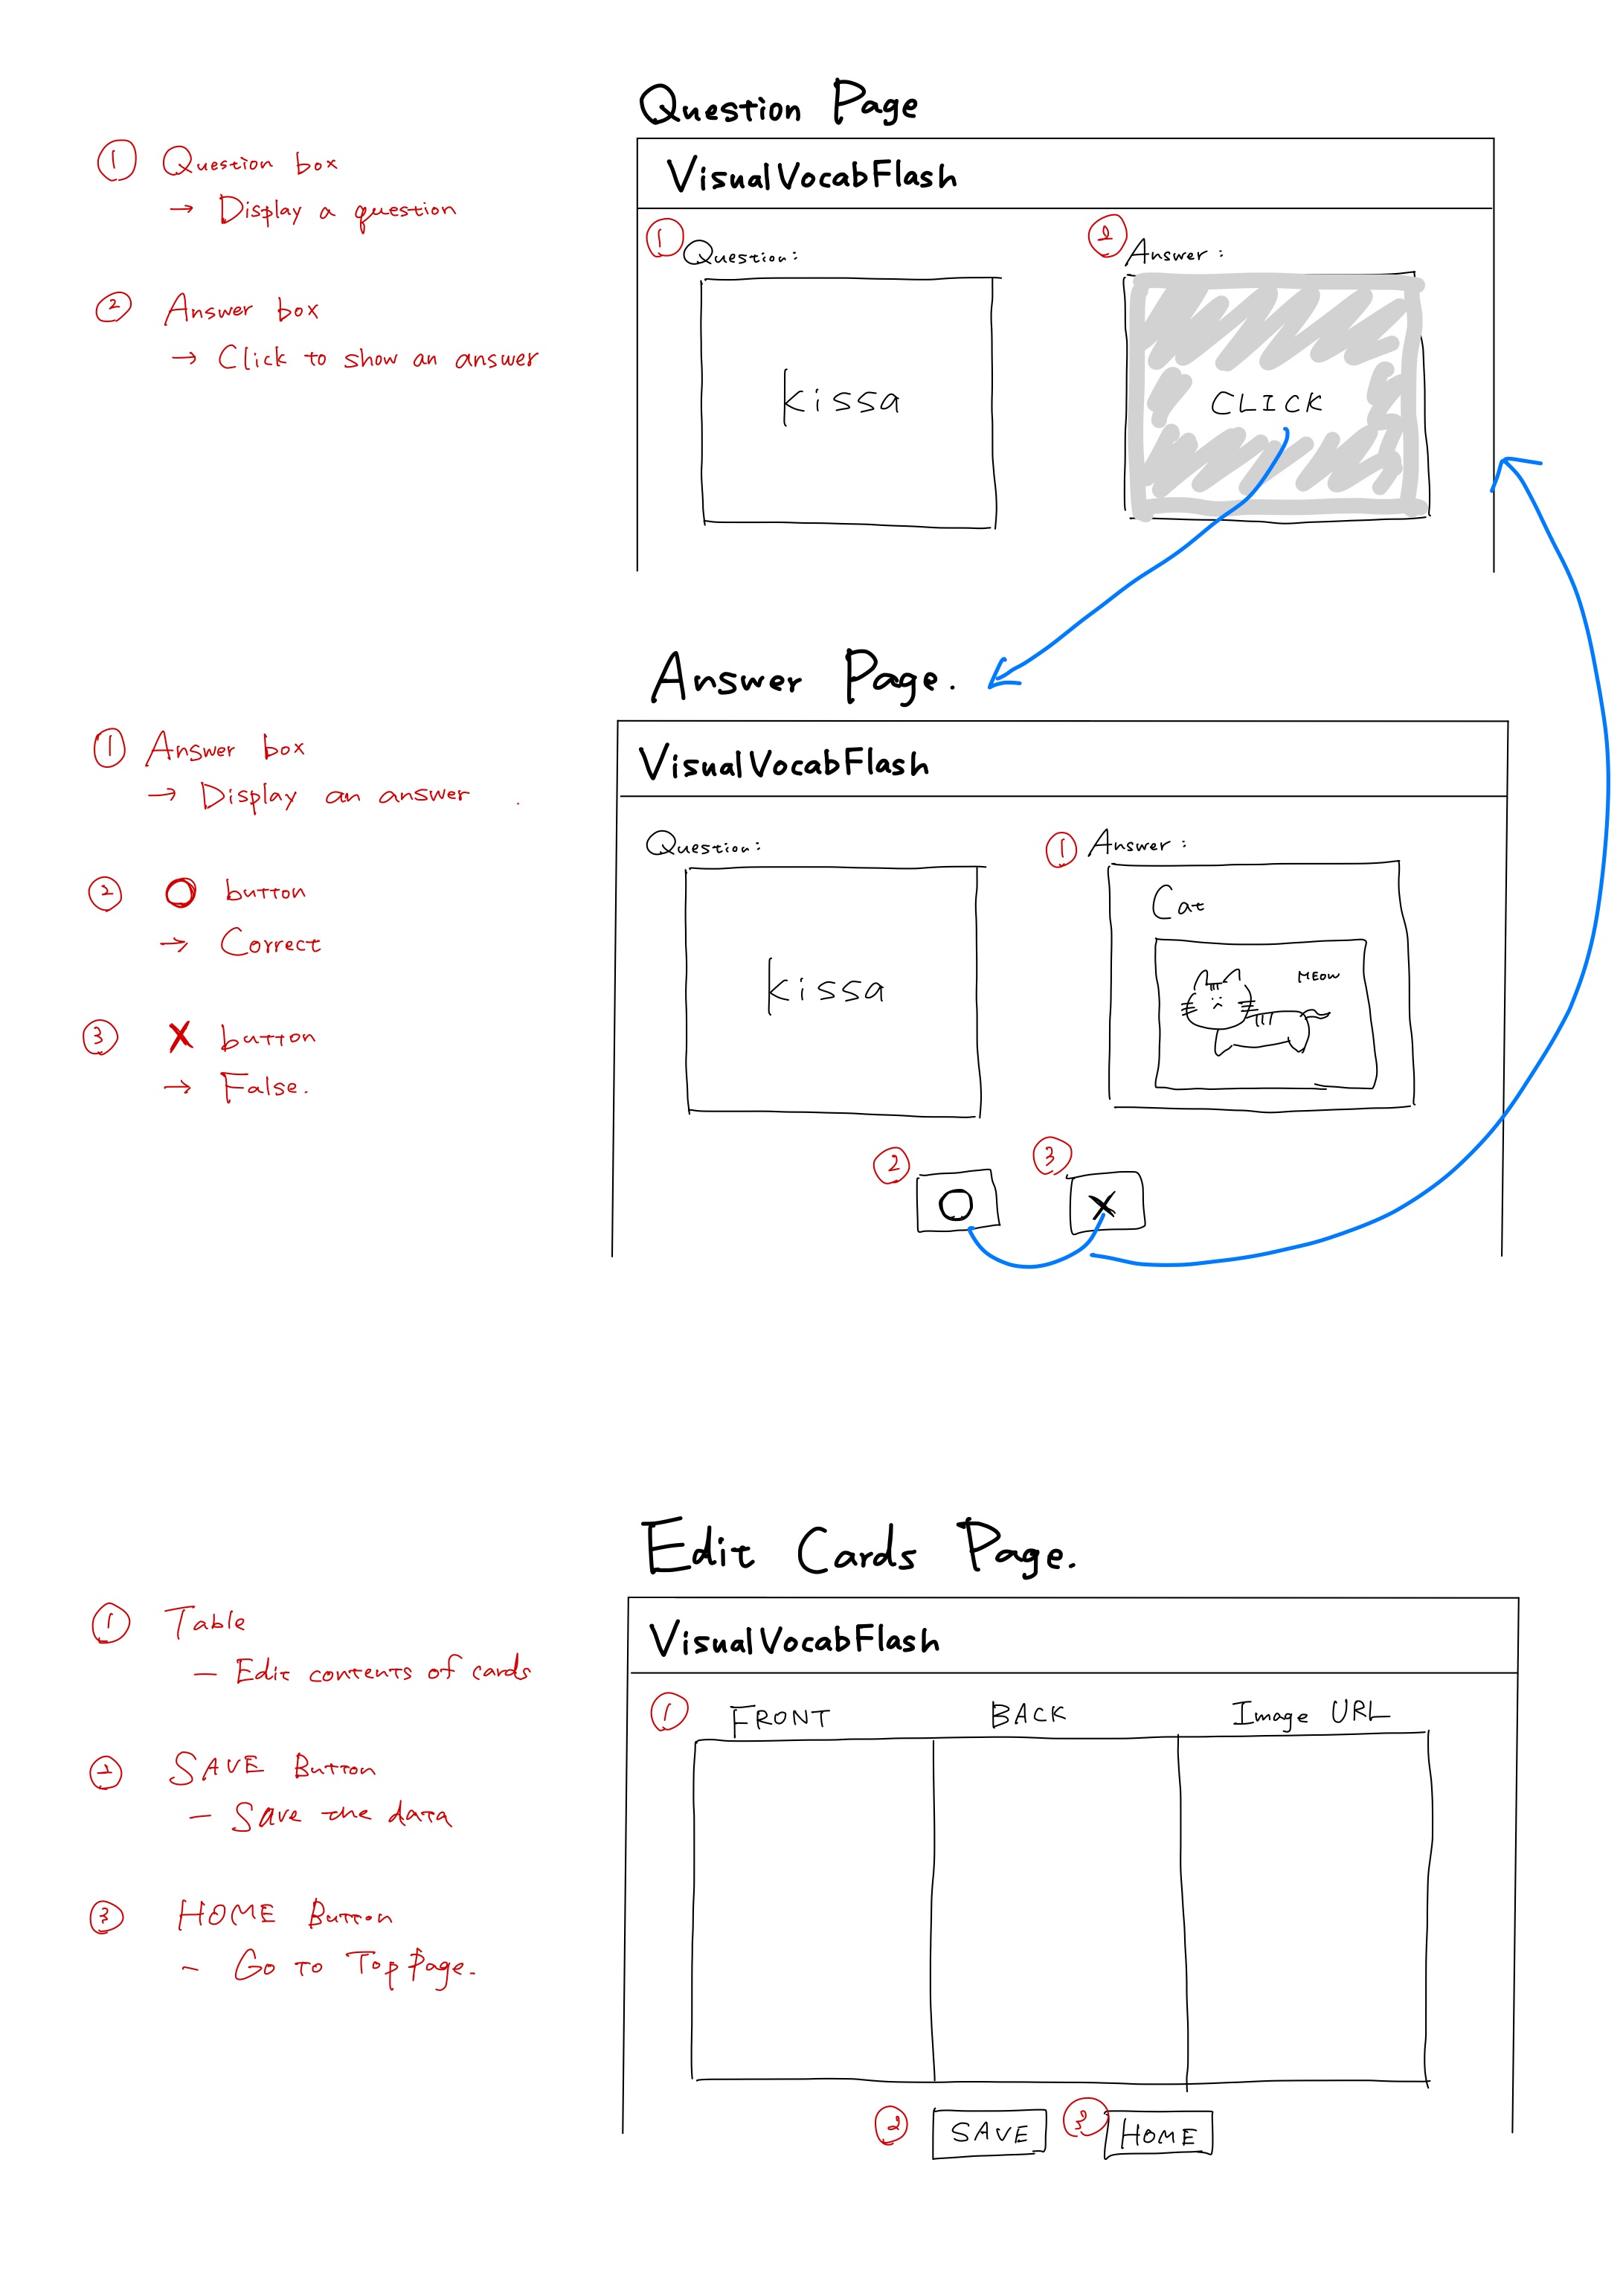 Question Page
① Question box
→ Display a question
② Answer box
→ Click to show an answer
VisualVocabFlash
① Question:
kissa
② Answer:
CLICK
Answer Page.
① Answer box
→ Display an answer.
② O button
→ Correct
③ X button
→ False.
VisualVocabFlash
Question:
kissa
① Answer:
Cat
MEOW
② O
③ X
Edit Cards Page.
① Table
— Edit contents of cards
② SAVE Button
— Save the data
③ HOME Button
- Go to Top Page.
VisualVocabFlash
① FRONT BACK Image URL
② SAVE ③ HOME